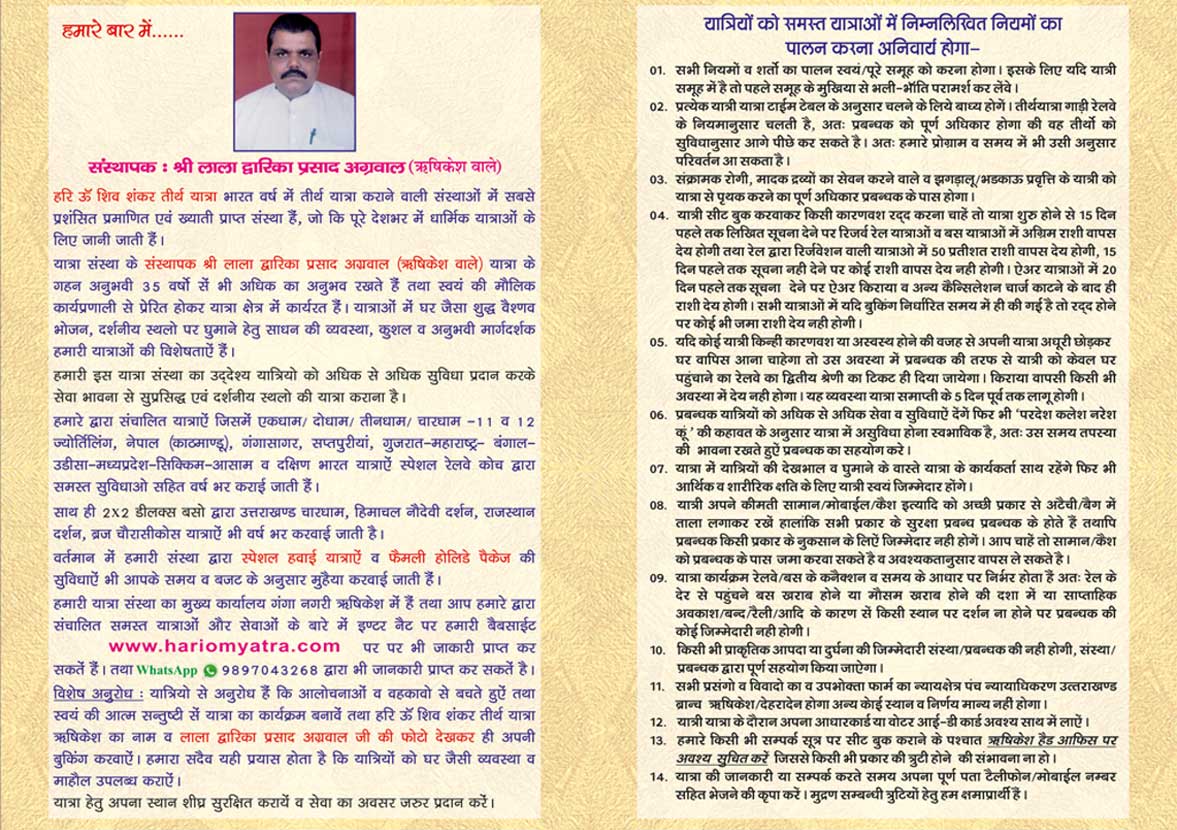 हमारे बार में......
संस्थापक : श्री लाला द्वारिका प्रसाद अग्रवाल (ऋषिकेश वाले)
हरि ॐ शिव शंकर तीर्थ यात्रा भारत वर्ष में तीर्थ यात्रा कराने वाली संस्थाओं में सबसे
प्रशंसित प्रमाणित एवं ख्याती प्राप्त संस्था हैं, जो कि पूरे देशभर में धार्मिक यात्राओं के
लिए जानी जाती हैं।
यात्रा संस्था के संस्थापक श्री लाला द्वारिका प्रसाद अग्रवाल (ऋषिकेश वाले) यात्रा के
गहन अनुभवी 35 वर्षो सें भी अधिक का अनुभव रखते हैं तथा स्वयं की मौलिक
कार्यप्रणाली से प्रेरित होकर यात्रा क्षेत्र में कार्यरत हैं। यात्राओं में घर जैसा शुद्ध वैश्णव
भोजन, दर्शनीय स्थलो पर घुमाने हेतु साधन की व्यवस्था, कुशल व अनुभवी मार्गदर्शक
हमारी यात्राओं की विशेषताऐं हैं।
हमारी इस यात्रा संस्था का उद्देश्य यात्रियो को अधिक से अधिक सुविधा प्रदान करके
सेवा भावना से सुप्रसिद्व एवं दर्शनीय स्थलो की यात्रा कराना है।
हमारे द्वारा संचालित यात्राऐं जिसमें एकधाम/ दोधाम/ तीनधाम/ चारधाम –11 व 12
ज्योर्तिलिंग, नेपाल (काठमाण्डू), गंगासागर, सप्तपुरीयां, गुजरात–महाराष्ट्र– बंगाल–
उडीसा–मध्यप्रदेश–सिक्किम–आसाम व दक्षिण भारत यात्राऐं स्पेशल रेलवे कोच द्वारा
समस्त सुविधाओ सहित वर्ष भर कराई जाती हैं।
साथ ही 2X2 डीलक्स बसो द्वारा उत्तराखण्ड चारधाम, हिमाचल नौदेवी दर्शन, राजस्थान
दर्शन, ब्रज चौरासीकोस यात्राऐं भी वर्ष भर करवाई जाती है।
वर्तमान में हमारी संस्था द्वारा स्पेशल हवाई यात्राऐं व फैमली होलिडे पैकेज की
सुविधाऐं भी आपके समय व बजट के अनुसार मुहैया करवाई जाती हैं।
हमारी यात्रा संस्था का मुख्य कार्यालय गंगा नगरी ऋषिकेश में हैं तथा आप हमारे द्वारा
संचालित समस्त यात्राओं और सेवाओं के बारे में इण्टर नैट पर हमारी बैबसाईट
www.hariomyatra.com पर पर भी जाकारी प्राप्त कर
सकतें हैं। तथा WhatsApp 9897043268 द्वारा भी जानकारी प्राप्त कर सकतें है।
विशेष अनुरोध : यात्रियो से अनुरोध हैं कि आलोचनाओं व वहकावो से बचते हुऐं तथा
स्वयं की आत्म सन्तुष्टी सें यात्रा का कार्यक्रम बनावें तथा हरि ॐ शिव शंकर तीर्थ यात्रा
ऋषिकेश का नाम व लाला द्वारिका प्रसाद अग्रवाल जी की फोटो देखकर ही अपनी
बुकिंग करवाऐं। हमारा सदैव यही प्रयास होता है कि यात्रियों को घर जैसी व्यवस्था व
माहौल उपलब्ध कराऐं।
यात्रा हेतु अपना स्थान शीघ्र सुरक्षित करायें व सेवा का अवसर जरुर प्रदान करें।
यात्रियों को समस्त यात्राओं में निम्नलिखित नियमों का
पालन करना अनिवार्य होगा–
01. सभी नियमों व शर्तो का पालन स्वयं/पूरे समूह को करना होगा। इसके लिए यदि यात्री
समूह में है तो पहले समूह के मुखिया से भली–भाँति परामर्श कर लेंवे।
02. प्रत्येक यात्री यात्रा टाईम टेबल के अनुसार चलने के लिये बाध्य होगें। तीर्थयात्रा गाड़ी रेलवे
के नियमानुसार चलती है, अतः प्रबन्धक को पूर्ण अधिकार होगा की वह तीर्थो को
सुविधानुसार आगे पीछे कर सकते है। अतः हमारे प्रोग्राम व समय में भी उसी अनुसार
परिवर्तन आ सकता है।
03. संक्रामक रोगी, मादक द्रव्यों का सेवन करने वाले व झगड़ालू/भडकाऊ प्रवृत्ति के यात्री को
यात्रा से पृथक करने का पूर्ण अधिकार प्रबन्धक के पास होगा।
04. यात्री सीट बुक करवाकर किसी कारणवश रद्द करना चाहें तो यात्रा शुरु होने से 15 दिन
पहले तक लिखित सूचना देने पर रिजर्व रेल यात्राओं व बस यात्राओं में अग्रिम राशी वापस
देय होगी तथा रेल द्वारा रिर्जवेशन वाली यात्राओ में 50 प्रतीशत राशी वापस देय होगी, 15
दिन पहले तक सूचना नही देने पर कोई राशी वापस देय नही होगी। ऐअर यात्राओं में 20
दिन पहले तक सूचना देने पर ऐअर किराया व अन्य कैन्सिलेशन चार्ज काटने के बाद ही
राशी देय होगी। सभी यात्राओं में यदि बुकिंग निर्धारित समय में ही की गई है तो रद्द होने
पर कोई भी जमा राशी देय नही होगी।
05. यदि कोई यात्री किन्हीं कारणवश या अस्वस्थ होने की वजह से अपनी यात्रा अधूरी छोड़कर
घर वापिस आना चाहेगा तो उस अवस्था में प्रबन्धक की तरफ से यात्री को केवल घर
पहुंचाने का रेलवे का द्वितीय श्रेणी का टिकट ही दिया जायेगा। किराया वापसी किसी भी
अवस्था में देय नही होगा। यह व्यवस्था यात्रा समाप्ती के 5 दिन पूर्व तक लागू होगी।
06. प्रबन्धक यात्रियों को अधिक से अधिक सेवा व सुविधाऐं देंगे फिर भी 'परदेश कलेश नरेश
कूं ' की कहावत के अनुसार यात्रा में असुविधा होना स्वभाविक है, अतः उस समय तपस्या
की भावना रखते हुऐं प्रबन्धक का सहयोग करे।
07. यात्रा में यात्रियों की देखभाल व घुमाने के वास्ते यात्रा के कार्यकर्ता साथ रहेंगे फिर भी
आर्थिक व शारीरिक क्षति के लिए यात्री स्वयं जिम्मेदार होंगे।
08. यात्री अपने कीमती सामान/मोबाईल/कैश इत्यादि को अच्छी प्रकार से अटैची/बैग में
ताला लगाकर रखें हालांकि सभी प्रकार के सुरक्षा प्रबन्ध प्रबन्धक के होते हैं तथापि
प्रबन्धक किसी प्रकार के नुकसान के लिऐं जिम्मेदार नही होगें। आप चाहें तो सामान/कैश
को प्रबन्धक के पास जमा करवा सकते है व अवश्यकतानुसार वापस ले सकते है।
09. यात्रा कार्यक्रम रेलवे/बस के कनैक्शन व समय के आधार पर निर्भर होता हैं अतः रेल के
देर से पहुंचने बस खराब होने या मौसम खराब होने की दशा में या साप्ताहिक
अवकाश/बन्द/रैली/आदि के कारण सें किसी स्थान पर दर्शन ना होने पर प्रबन्धक की
कोई जिम्मेदारी नही होगी।
10. किसी भी प्राकृतिक आपदा या दुर्घना की जिम्मेदारी संस्था/प्रबन्धक की नही होगी, संस्था/
प्रबन्धक द्वारा पूर्ण सहयोग किया जाऐगा।
11. सभी प्रसंगो व विवादो का व उपभोक्ता फार्म का न्यायक्षेत्र पंच न्यायाधिकरण उत्तराखण्ड
ब्रान्च ऋषिकेश/देहरादेन होगा अन्य कोई स्थान व निर्णय मान्य नही होगा।
12. यात्री यात्रा के दौरान अपना आधारकार्ड या वोटर आई–डी कार्ड अवश्य साथ में लाऐं।
13. हमारे किसी भी सम्पर्क सूत्र पर सीट बुक कराने के पश्चात ऋषिकेश हैड आफिस पर
अवश्य सुचित करें जिससे किसी भी प्रकार की त्रुटी होने की संभावना ना हो।
14. यात्रा की जानकारी या सम्पर्क करते समय अपना पूर्ण पता टैलीफोन/मोबाईल नम्बर
सहित भेजने की कृपा करें। मुद्रण सम्बन्धी त्रुटियों हेतु हम क्षमाप्रार्थी हैं।